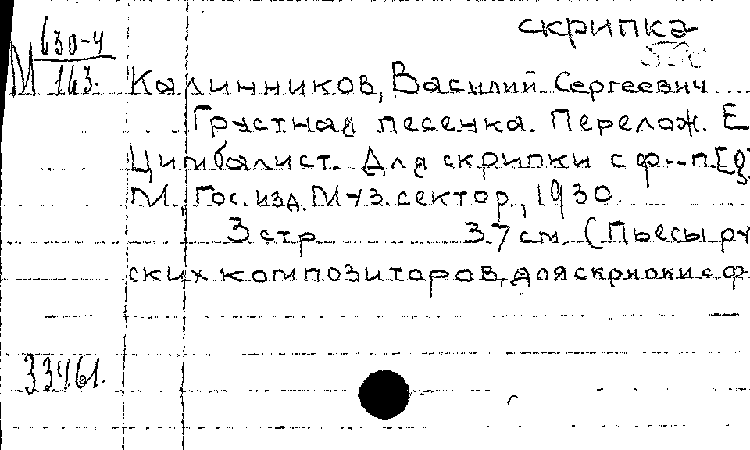 скрипка
М 630-4
163.
Калинников, Василий Сергеевич
Грустная песенка. Перелож. Е
Цимбалист. Для скрипки с ф.-п.[д]
М, Гос. изд. Муз. сектор, 1930
3 стр 37 см (Пьесы ру
ских композиторов, для скрипки с ф
33461.